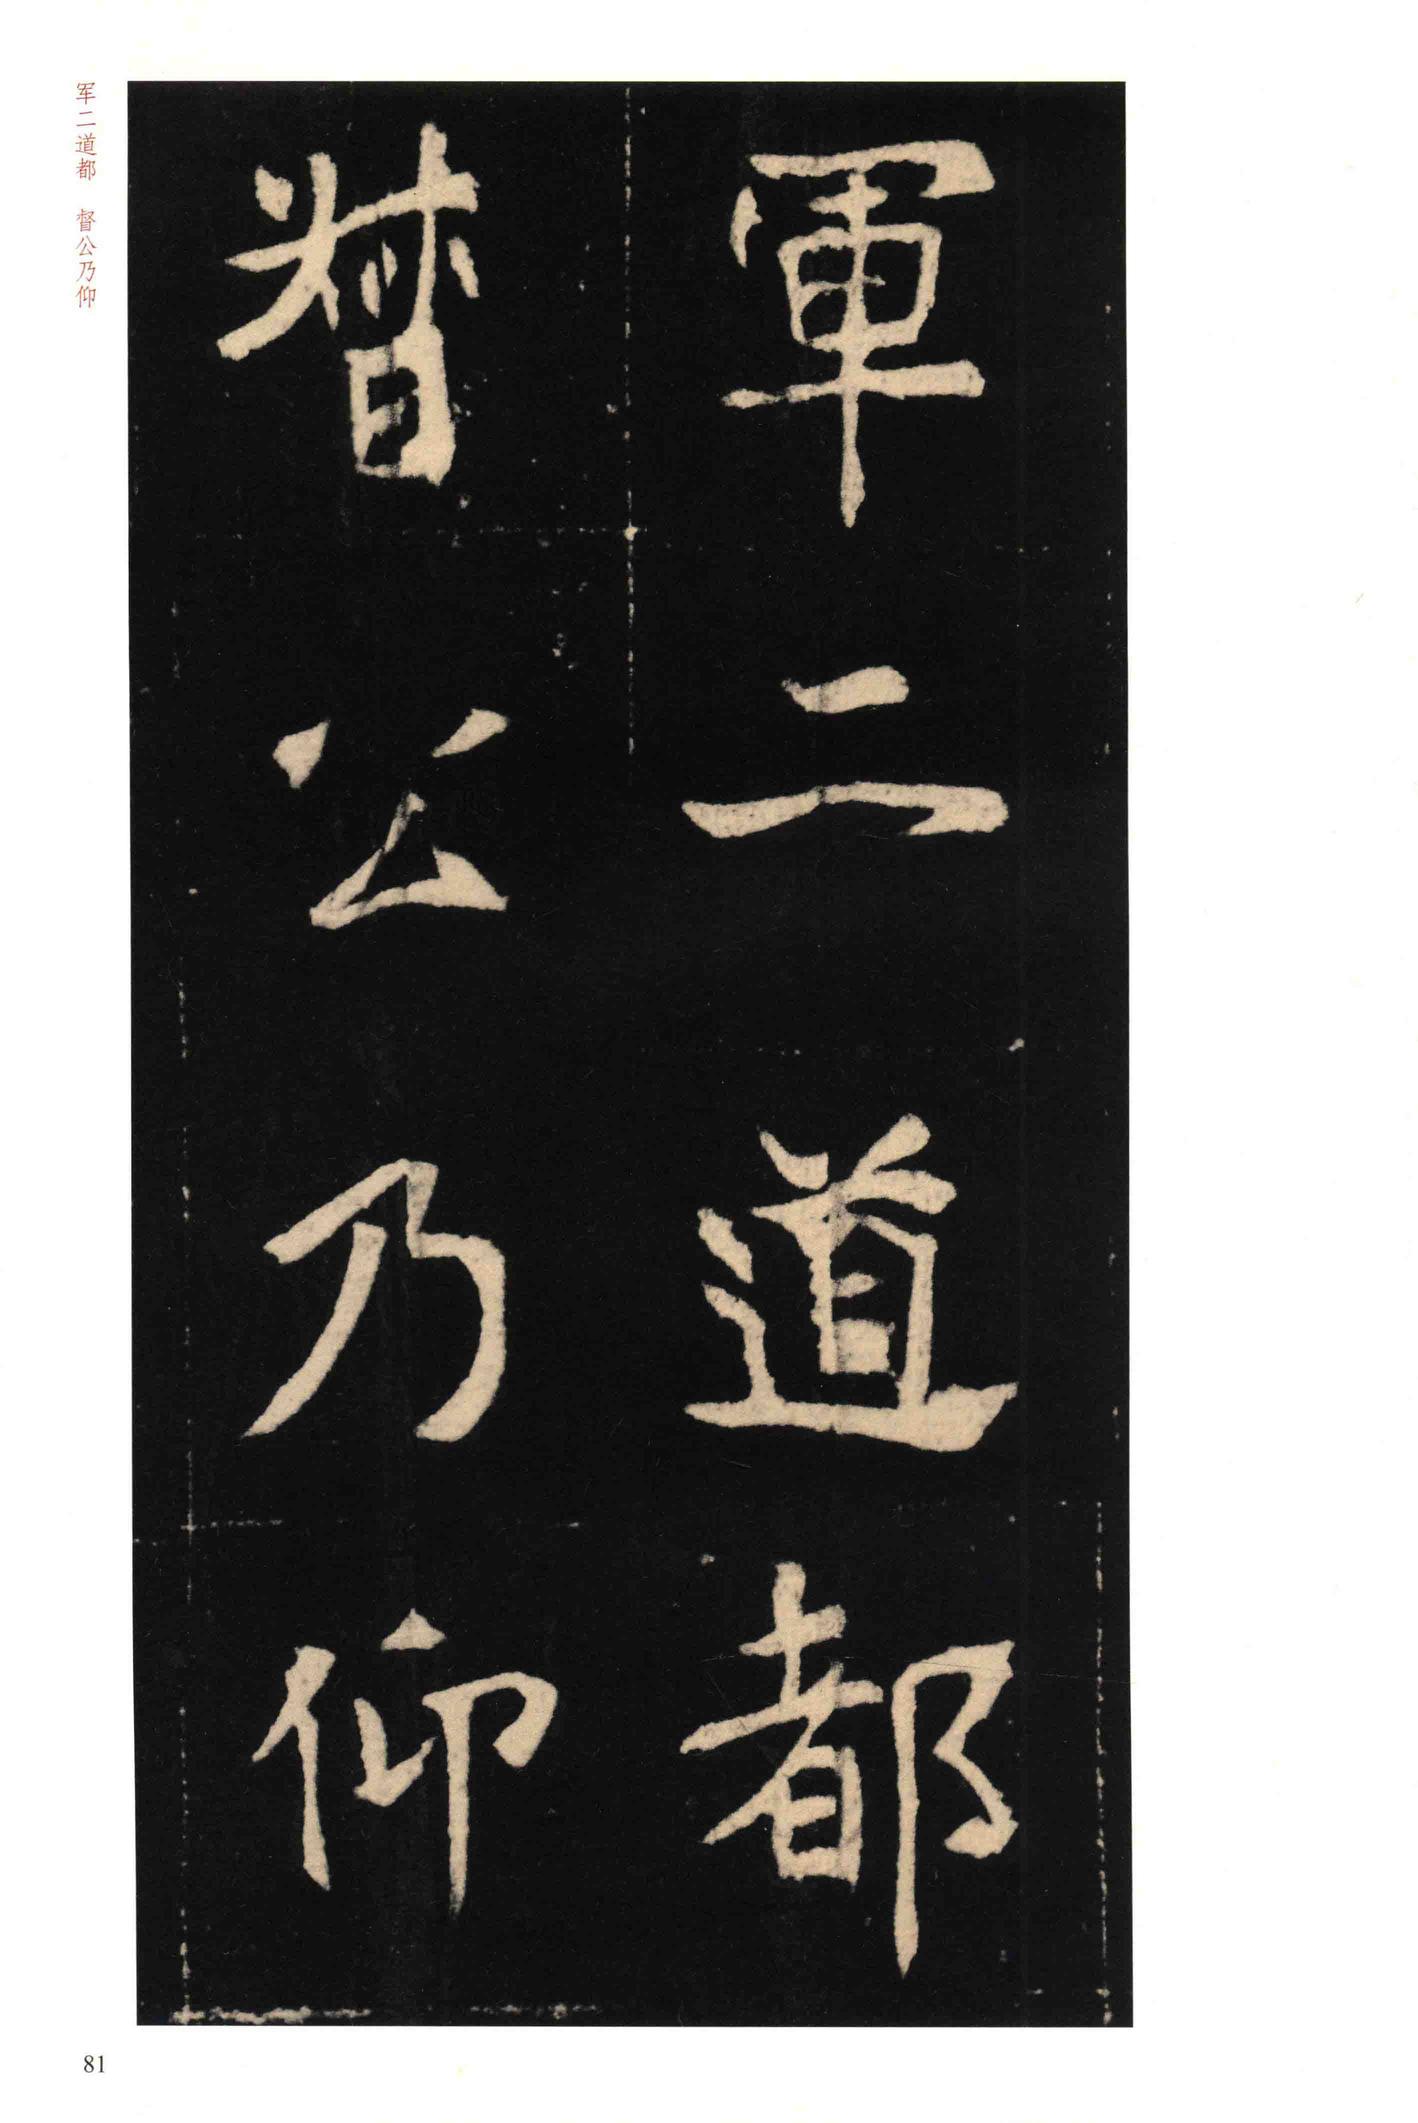 軍二道都
督公乃仰
军二道都 督公乃仰
81